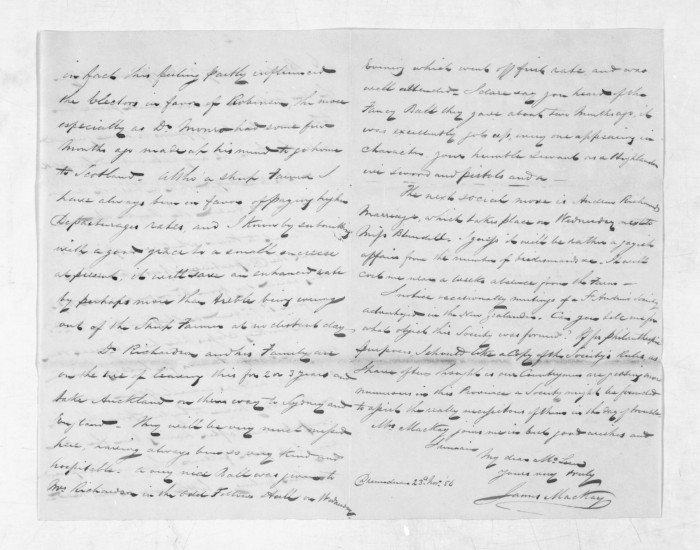 in fact this feeling partly influenced
the Electors in favor of Robinson the more
especially as Dr Monro had some few
months ago made up his mind to go home
to Scotland. Altho a sheep farmer I
have always been in favor of paying high
Depasturages rates, and I know by submitting
with a good grace to a small increase
at present, it will save an enhanced rate
by perhaps more than treble being wrung
out of the Sheep Farmer at no distant day
Dr Richardson and his Family are
on the eve of leaving this for 2 or 3 years and
take Auckland on their way to Sydney and
England - They will be very much missed
here, having always been so very kind and
hospitable. A very nice Ball was given to
Mrs Richardson in the Odd Fellows Hall on Wednesday
Evening which went off first rate and was
well attended. I dare say you heard of the
Fancy Ball they gave about two months ago, it
was excellently got up, every one appearing in
character your humble servant as a Highlander
with sword and pistols and
The next social move is Andrew Richmond's
Marriage, which takes place on Wednesday next to
Miss Blundell. I guess it will be rather a
affair from the number of bridesmaids &c. It will
cost me near a weeks absence from the Farm -
I notice occasionally meetings of a St Andrews Society
advertized in the New Zealander. Can you tell me for
what object this Society was formed? If for philanthropic
purposes I should like a Copy of the Society's Rules, as
I have often thought as our Countrymen are getting more
numerous in this Province a Society might be founded
to assist the really necessitous of them in the day of trouble
Mrs Mackay joins me in best good wishes and
I remain
My dear McLean
Yours very truly
James Mackay
Drumduan 28th Nov. 56